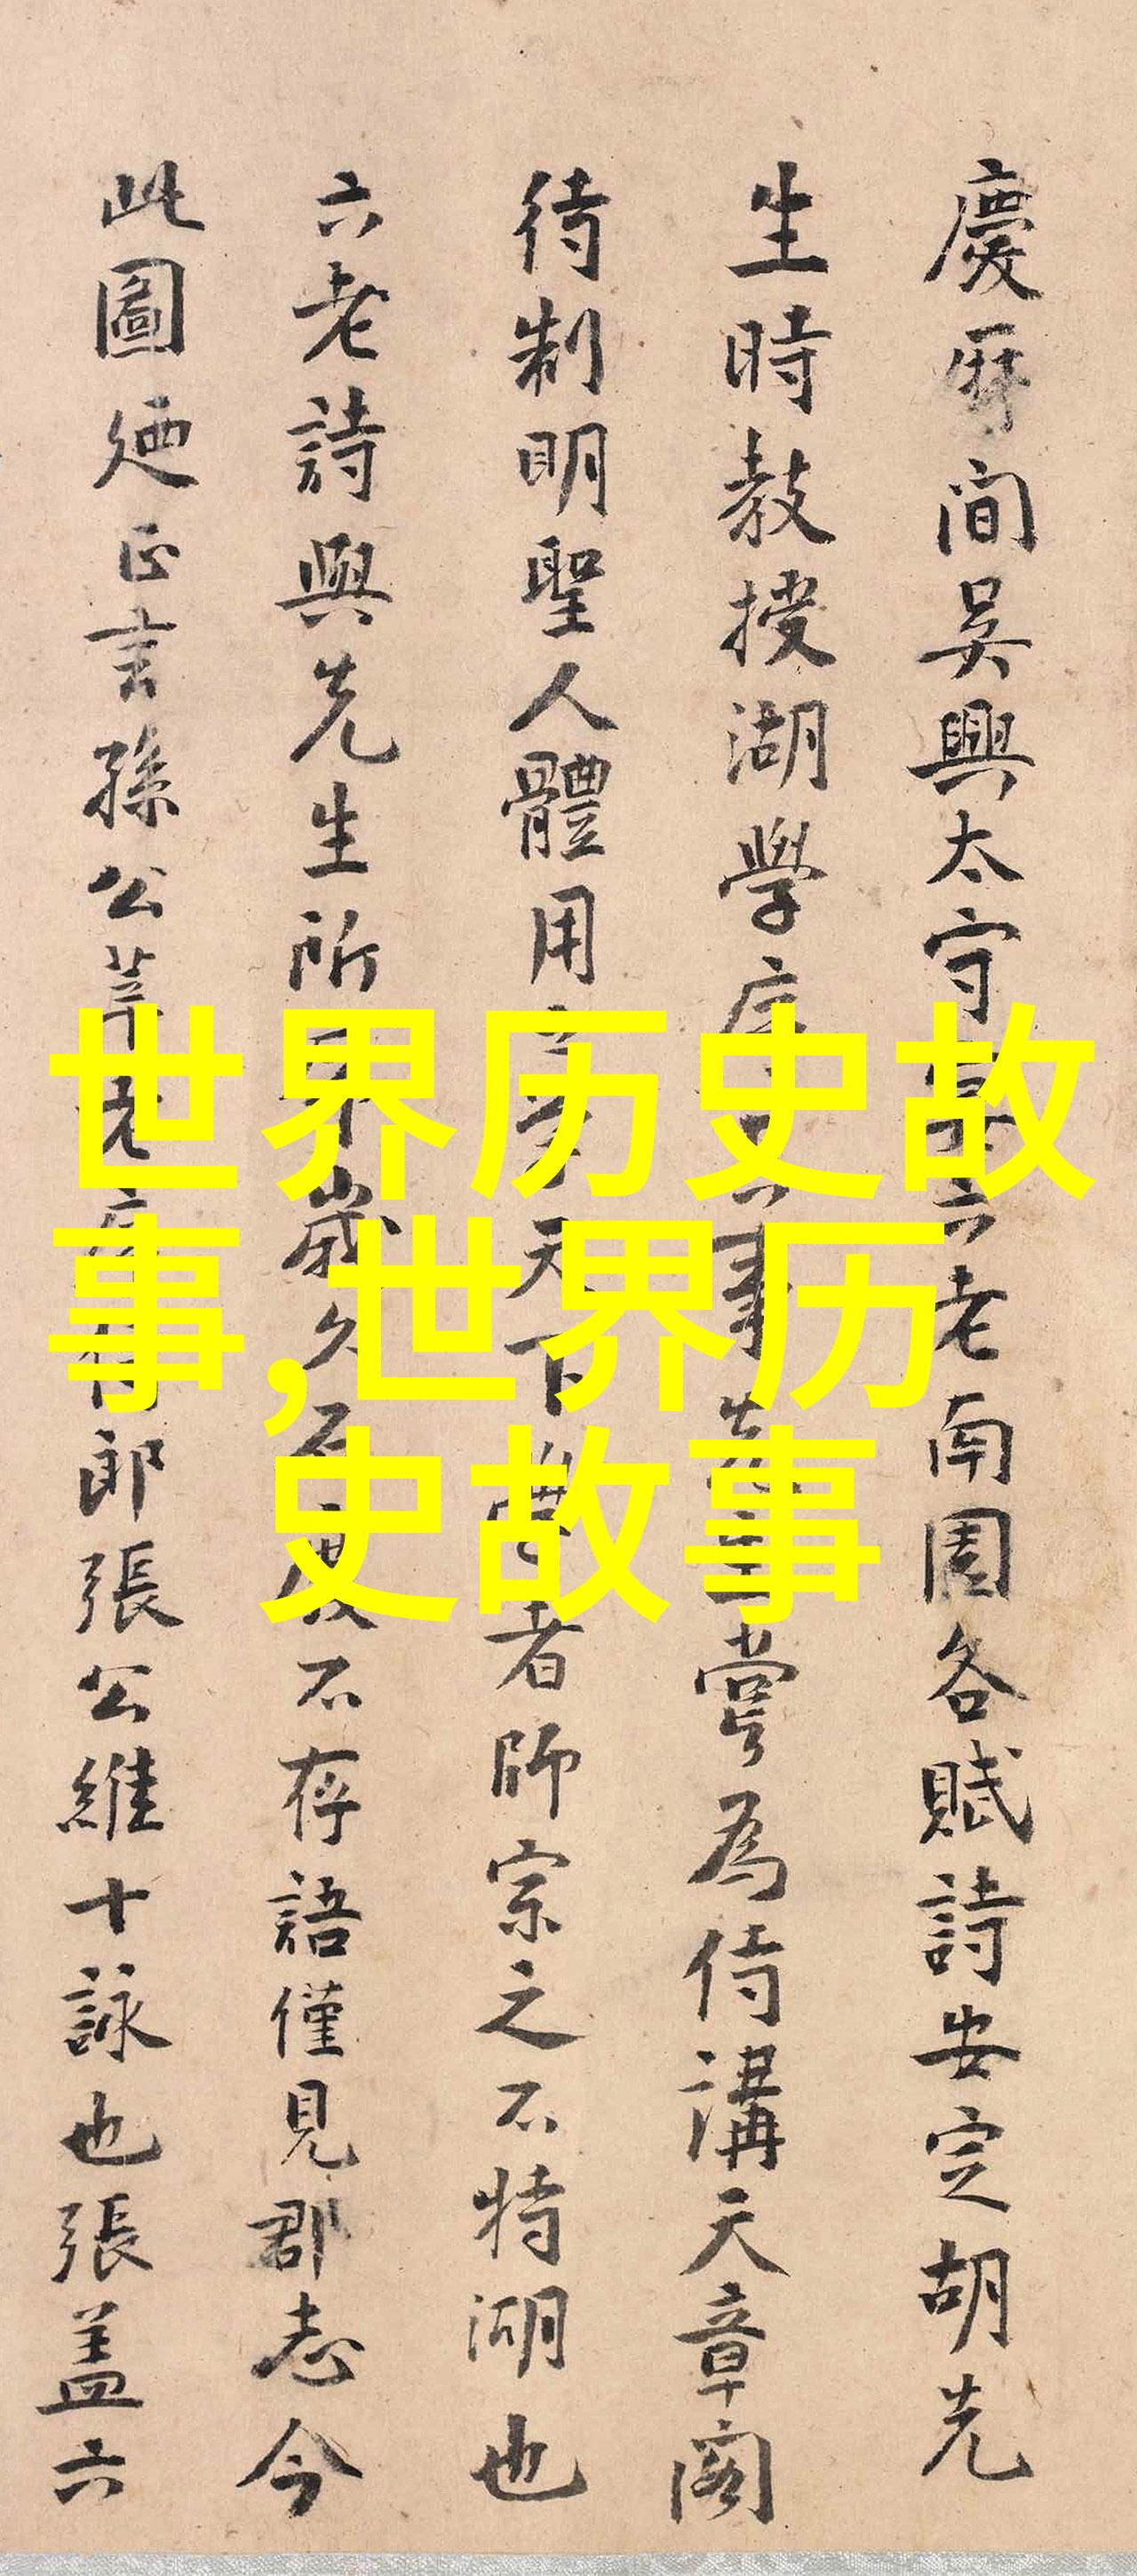 慶厯間吳興太守六老南園各賦詩安定胡先
生時教授湖學序事先生嘗為侍講天章閣
待制明聖人體用天下學者師宗之不特湖也
六老詩與先生所歲久石廢不存語僅見郡志今
此圖廼正言孫公莘老序侍郎張公維十詠也張盖六
世界历史故
事,世界历
史故事